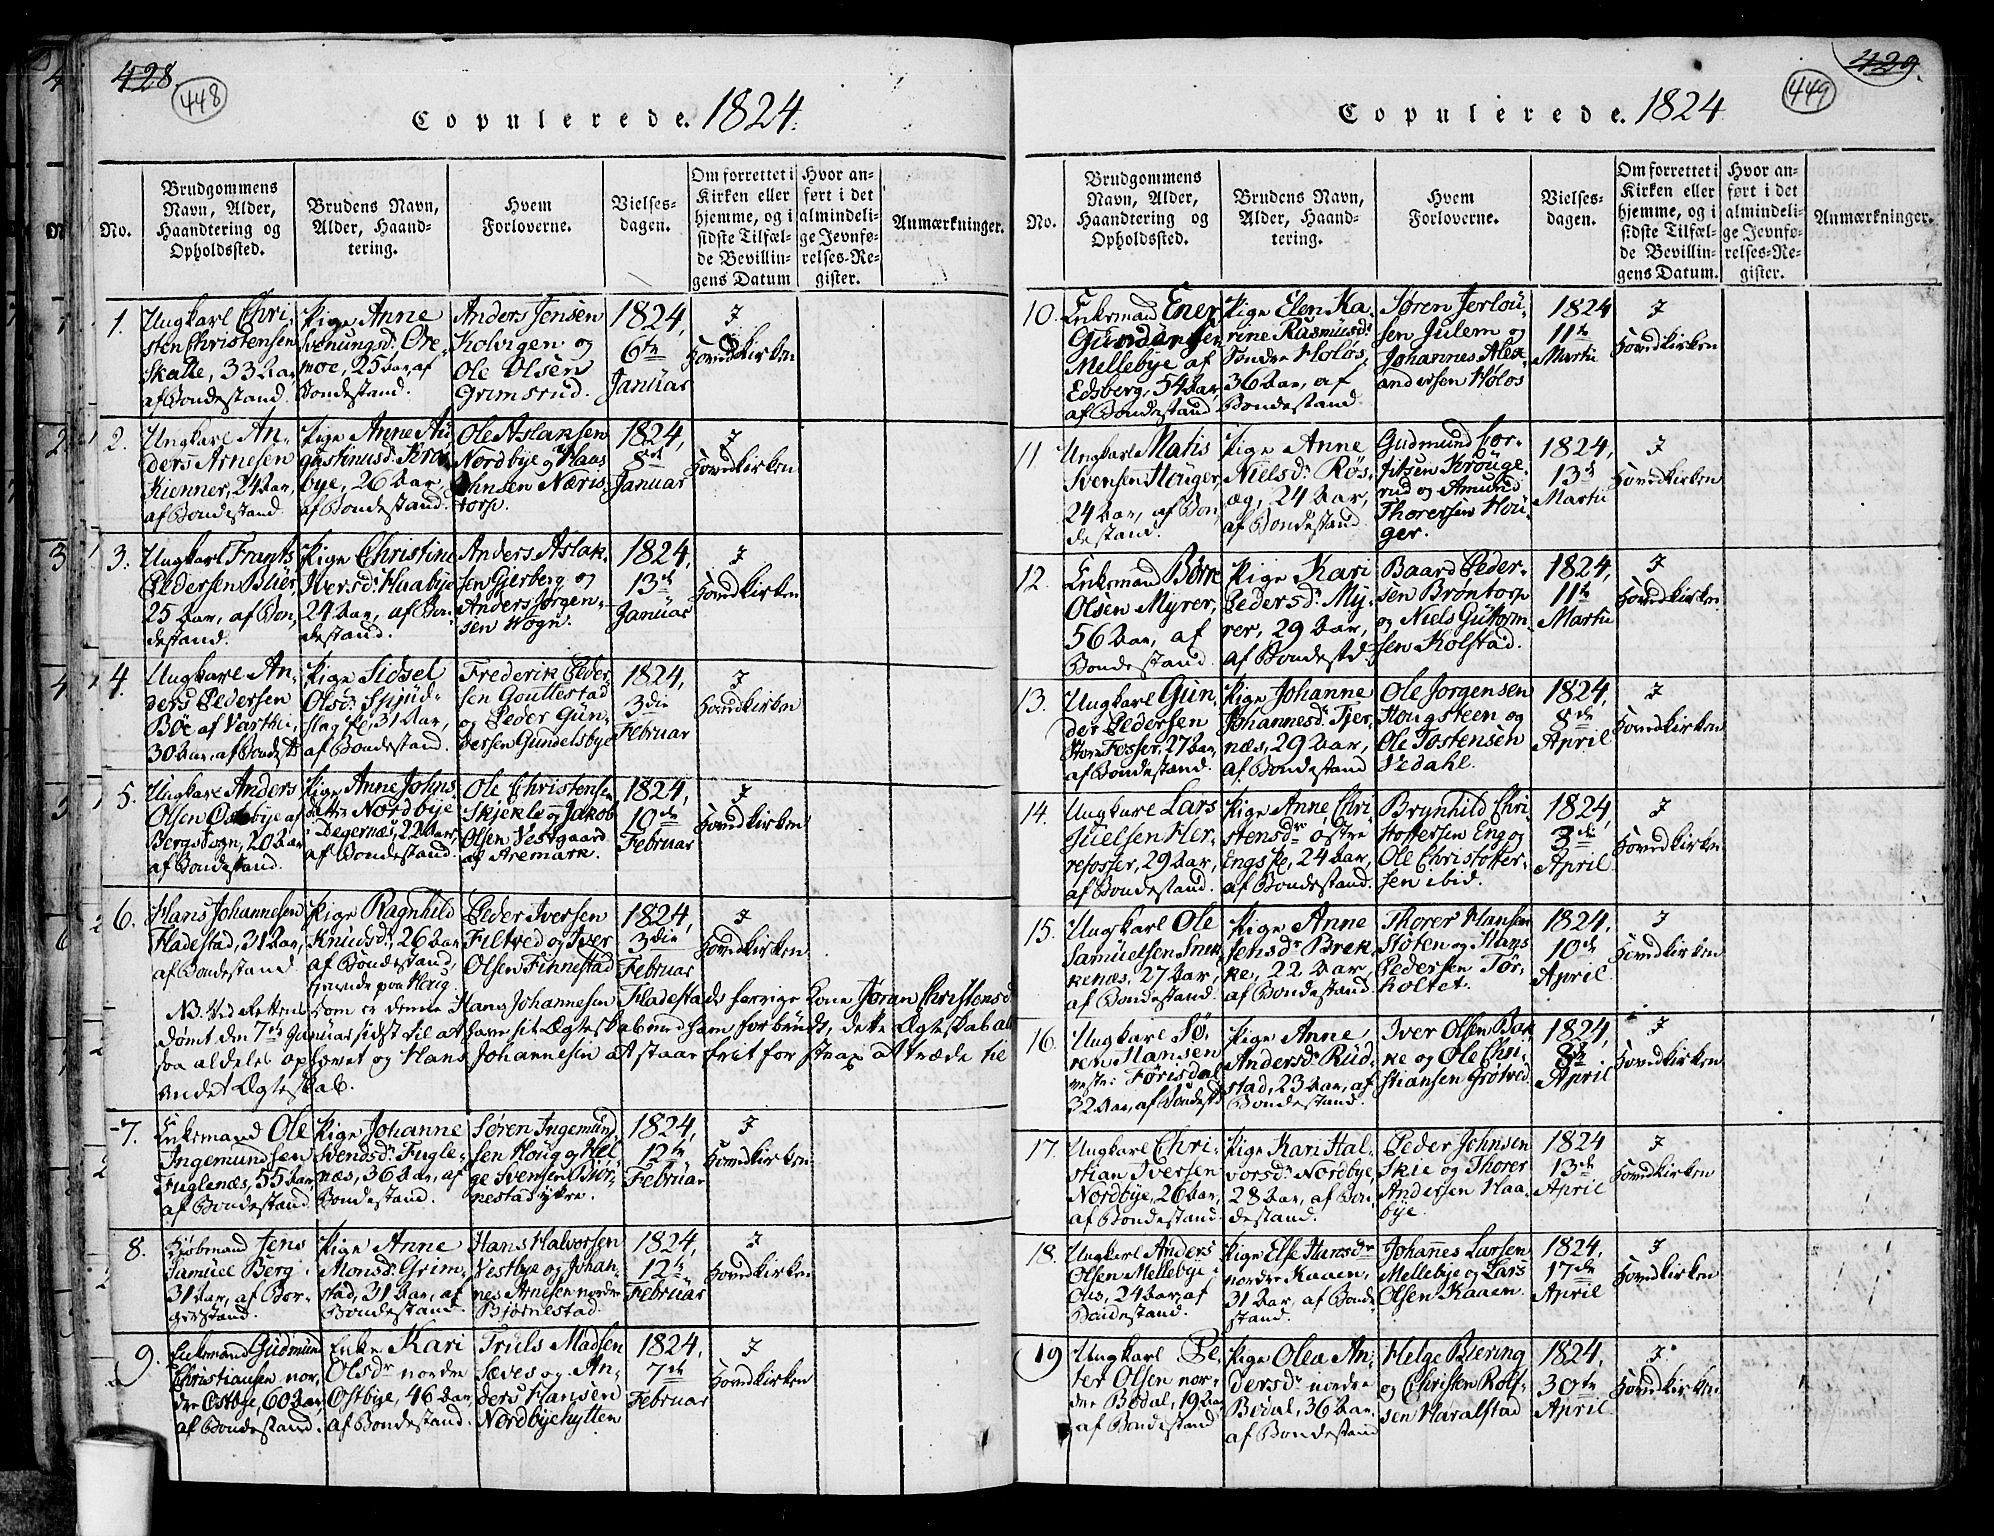 428.
448
Copulerede. 1824.
No.
Brudgommens
Navn, Alder,
Haandtering og
Opholdssted.
Brudens Navn,
Alder, Haand-
tering.
Hvem
Forloverne.
Vielses-
dagen.
Om forrettet i
Kirken eller
hjemme, og i
sidste Tilfæl-
de Bevillin-
gens Datum
Hvor an-
ført i det
almindeli-
ge Jevnfø-
relses-Re-
gister.
Anmærkninger.
1.
Ungkarl Chri-
sten Christensen
Skatte, 33 Aar,
af Bondestand.
Pige Anne
Svenungsd. Ore-
moe, 25 Aar, af
Bondestand.
Anders Jensen
Kolvigen og
Ole Olsen
Grimsrud.
1824,
6te
Januar
I
Hovedkirken
2.
Ungkarl An-
ders Arnesen
Kienner, 24 Aar,
af Bondestand.
Pige Anne Au-
gustinusd.
bye, 26 Aar,
af Bondestand.
Ole Aslaksen
Nordbye og Haas
Ohnsen Næris-
torp.
1824,
8de
Januar
I
Hovedkirken
3.
Ungkarl Frants
Pedersen Buer,
25 Aar, af Bon-
destand.
Pige Christine
Iversd. Haabye
24 Aar, af Bon-
destand.
Anders Aslak-
sen Gjerberg og
Anders Jørgen-
sen Hogn.
1824,
13de
Januar
I
Hovedkirken
4.
Ungkarl An-
ders Pedersen
Böe af Varthe,
30 Aar, af Bondest
Pige Sidsel
Olsd. Skjüd-
slag, 31 Aar,
af Bondestand.
Frederik Peder-
sen Gouttestad
og Peder Gün-
dersen Gundelsbye
1824,
3die
Februar
I
Hovedkirken
5.
Ungkarl Anders
Olsen Østbye af
Bergs Sogn, 20 Aar
af Bondestand.
Pige Anne Johns
datter Nordbye
i Degernæs, 22 Aar,
af Bondestand.
Ole Christensen
Skjekle og Jakob
Olsen Vestgaard
af Aremark.
1824,
10de
Februar
I
Hovedkirken
6.
Hans Johannesen
Fladestad, 31 Aar,
af Bondestand.
Pige Ragnhild
Knudsd., 26 Aar
af Bondestand,
tjenende paa Herig.
Peder Iversen
Filtved og Iver
Olsen Finnestad
1824,
3die
Februar
I
Hovedkirken
NB. Ved Rettens Dom er denne Hans Johannesen Fladestads forrige Kone Jøran Christensd
dømt den 7de Januar sidst til at have sit Ægteskab med ham forbrudt, dette Ægteskab alt
saa aldeles ophævet og Hans Johannesen at staar frit for strax at træde til
andet Ægteskab.
7.
Enkemand Ole
Ingemundsen
Fuglenæs, 55 Aar
af Bondestand
Pige Johanne
Svendsd. Fugle-
næs, 36 Aar, af
Bondestand.
Søren Ingemund
sen Houg og Hel-
ge Svensen Biør-
nestadykre.
1824,
12te
Februar
I
Hovedkirken
8.
Kjøbmand Jens
Samuel Berg
31 Aar, af Bor-
gerstand.
Pige Anne
Monsd. Grim-
stad, 31 Aar, af
Bondestand.
Hans Halvorsen
Vestbye og Johan-
nes Arnesen nordre
Bjørnestad.
1824,
12te
Februar
I
Hovedkirken
9.
Enkemand Gudmund
Christiansen nor-
dre Østbye, 60 Aar
af Bondestand.
Enke Kari
Olsdr. nordre
Østbye, 46 Aar,
af Bondestand.
Truls Madsen
Sæves og An-
ders Hansen
Nordbyehytten
1824,
7de
Februar
I
Hovedkirken
429.
449
Copulerede. 1824
No.
Brudgommens
Navn, Alder,
Haandtering og
Opholdssted.
Brudens Navn,
Alder, Haand-
tering.
Hvem
Forloverne.
Vielses-
dagen.
Om forrettet i
Kirken eller
hjemme, og i
sidste Tilfæl-
de Bevillin-
gens Datum.
Hvor an-
ført i det
almindeli-
ge Jevnfø-
relses-Re-
gister.
Anmærkninger.
10.
Enkemand Ener
Gundersen
Mellebye af
Edsberg, 54 Aar
af Bondestand
Pige Elen Ka-
rine Rasmusd.
Søndre Holøs,
36 Aar, af
Bondestand.
Søren Jerlou-
sen Julem og
Johannes Alex
andersen Holos
1824
11te
Martii
I
Hovedkirken
11.
Ungkarl Matis
Svensen Houger,
24 Aar, af Bon-
destand.
Pige Anne
Nielsd. Røs-
æg, 24 Aar,
af Bondestand.
Gudmund Tor-
fitsen Krouge-
rud og Amund
Thoresen Hou-
ger.
1824,
13de
Martii
I
Hovedkirken
12.
Enkemand Børre
Olsen Myrer,
56 Aar, af
Bondestand.
Pige Kari
Pedersd. My-
rer, 29 Aar,
af Bondestd.
Baard Peder-
sen Brøntorp
og Niels Guttorm-
sen Kolstad.
1824,
11te
Martii
I
Hovedkirken
13.
Ungkarl Gun-
der Pedersen
Store Fosser, 27 Aar,
af Bondestand.
Pige Johanne
Johannesd. Tjer-
næs, 29 Aar,
af Bondestand
Ole Jorgensen
Hougsteen og
Ole Tostensen
Vedahl.
1824,
8de
April
I
Hovedkirken
14.
Ungkarl Lars
Nielsen Her-
refosser, 29 Aar,
af Bondestand.
Pige Anne Chri-
stensdr. østre
Engske, 24 Aar,
af Bondestand.
Brynhild Chri-
stoffersen Eng og
Ole Christoffer-
sen ibid.
1824,
3de
April
I
Hovedkirken
15.
Ungkarl Ole
Samuelsen Snek-
kenæs, 27 Aar,
af Bondestand.
Pige Anne
Jensdr. Brek-
ke, 22 Aar,
af Bondestand.
Thorer Hansen
Støten og Hans
Pedersen Tør-
holtet.
1824,
10de
April
I
Hovedkirken
16.
Ungkarl Sø-
ren Hansen
vestre Førisdal
32 Aar, af Bondestd
Pige Anne
Andersd. Rud-
stad, 23 Aar, af
Bondestand.
Iver Olsen Bak-
ke og Ole Chri-
stiansen Grøtved
1824,
8de
April
I
Hovedkirken
17.
Ungkarl Chri-
stian Iversen
Nordbye, 26 Aar,
af Bondestand.
Pige Kari Hal-
vorsd. Nordbye,
28 Aar, af Bon-
destand.
Peder Johnsen
Skie og Thorer
Andersen Haa-
bye.
1824
13de
April
I
Hovedkirken
18.
Ungkarl Anders
Olsen Mellebye i
Ous, 24 Aar, af
Bondestand.
Pige Else Hansdr.
nordre Kaaen,
31 Aar, af Bonde
stand.
Johannes Larsen
Mellebye og Lars
Olsen Kaaen.
1824,
17de
April
I
Hovedkirken
19
Ungkarl Pe-
ter Olsen nor-
dre Bødal, 19 Aar
af Bondestand
Pige Olea An-
dersdr. nordre
Bødal, 36 Aar,
af Bondestand
Helge Biering
og Christen Rolf-
sen Haralstad
1824,
30te
April.
I
Hovedkirken